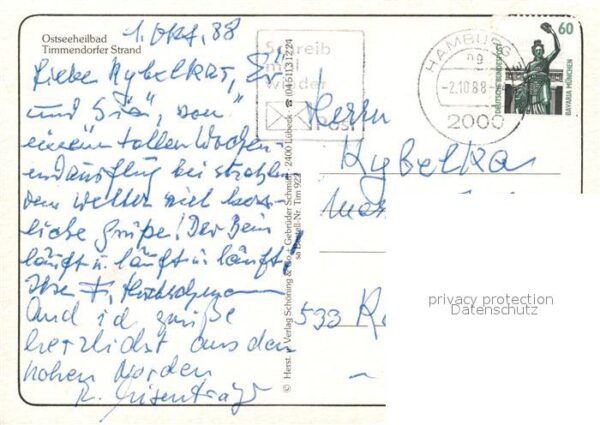 Ostseeheilbad
Timmendorfer Strand
1. Okt. 88
Liebe Kybelkas, "Er"
und "Sie", von
einem tollen Wochen-
endausflug bei strahlen
dem Wetter viel herz-
liche Grüße! Der Bein
läuft u. läuft u. läuft!
Ihre
Und ich grüße
herzlichst aus dem
hohen Norden
R.
© Herst. u. Verlag Schöning & Co. + Gebrüder Schmidt · 2400 Lübeck · ☎ (0451) 31224
Bestell-Nr. Tim 922
Schreib
mal
wieder
Post
HAMBURG
ng
-2.10.88-
2000
60
DEUTSCHE BUNDESPOST
BAVARIA MÜNCHEN
Herrn
Kybelka
533
privacy protection
Datenschutz